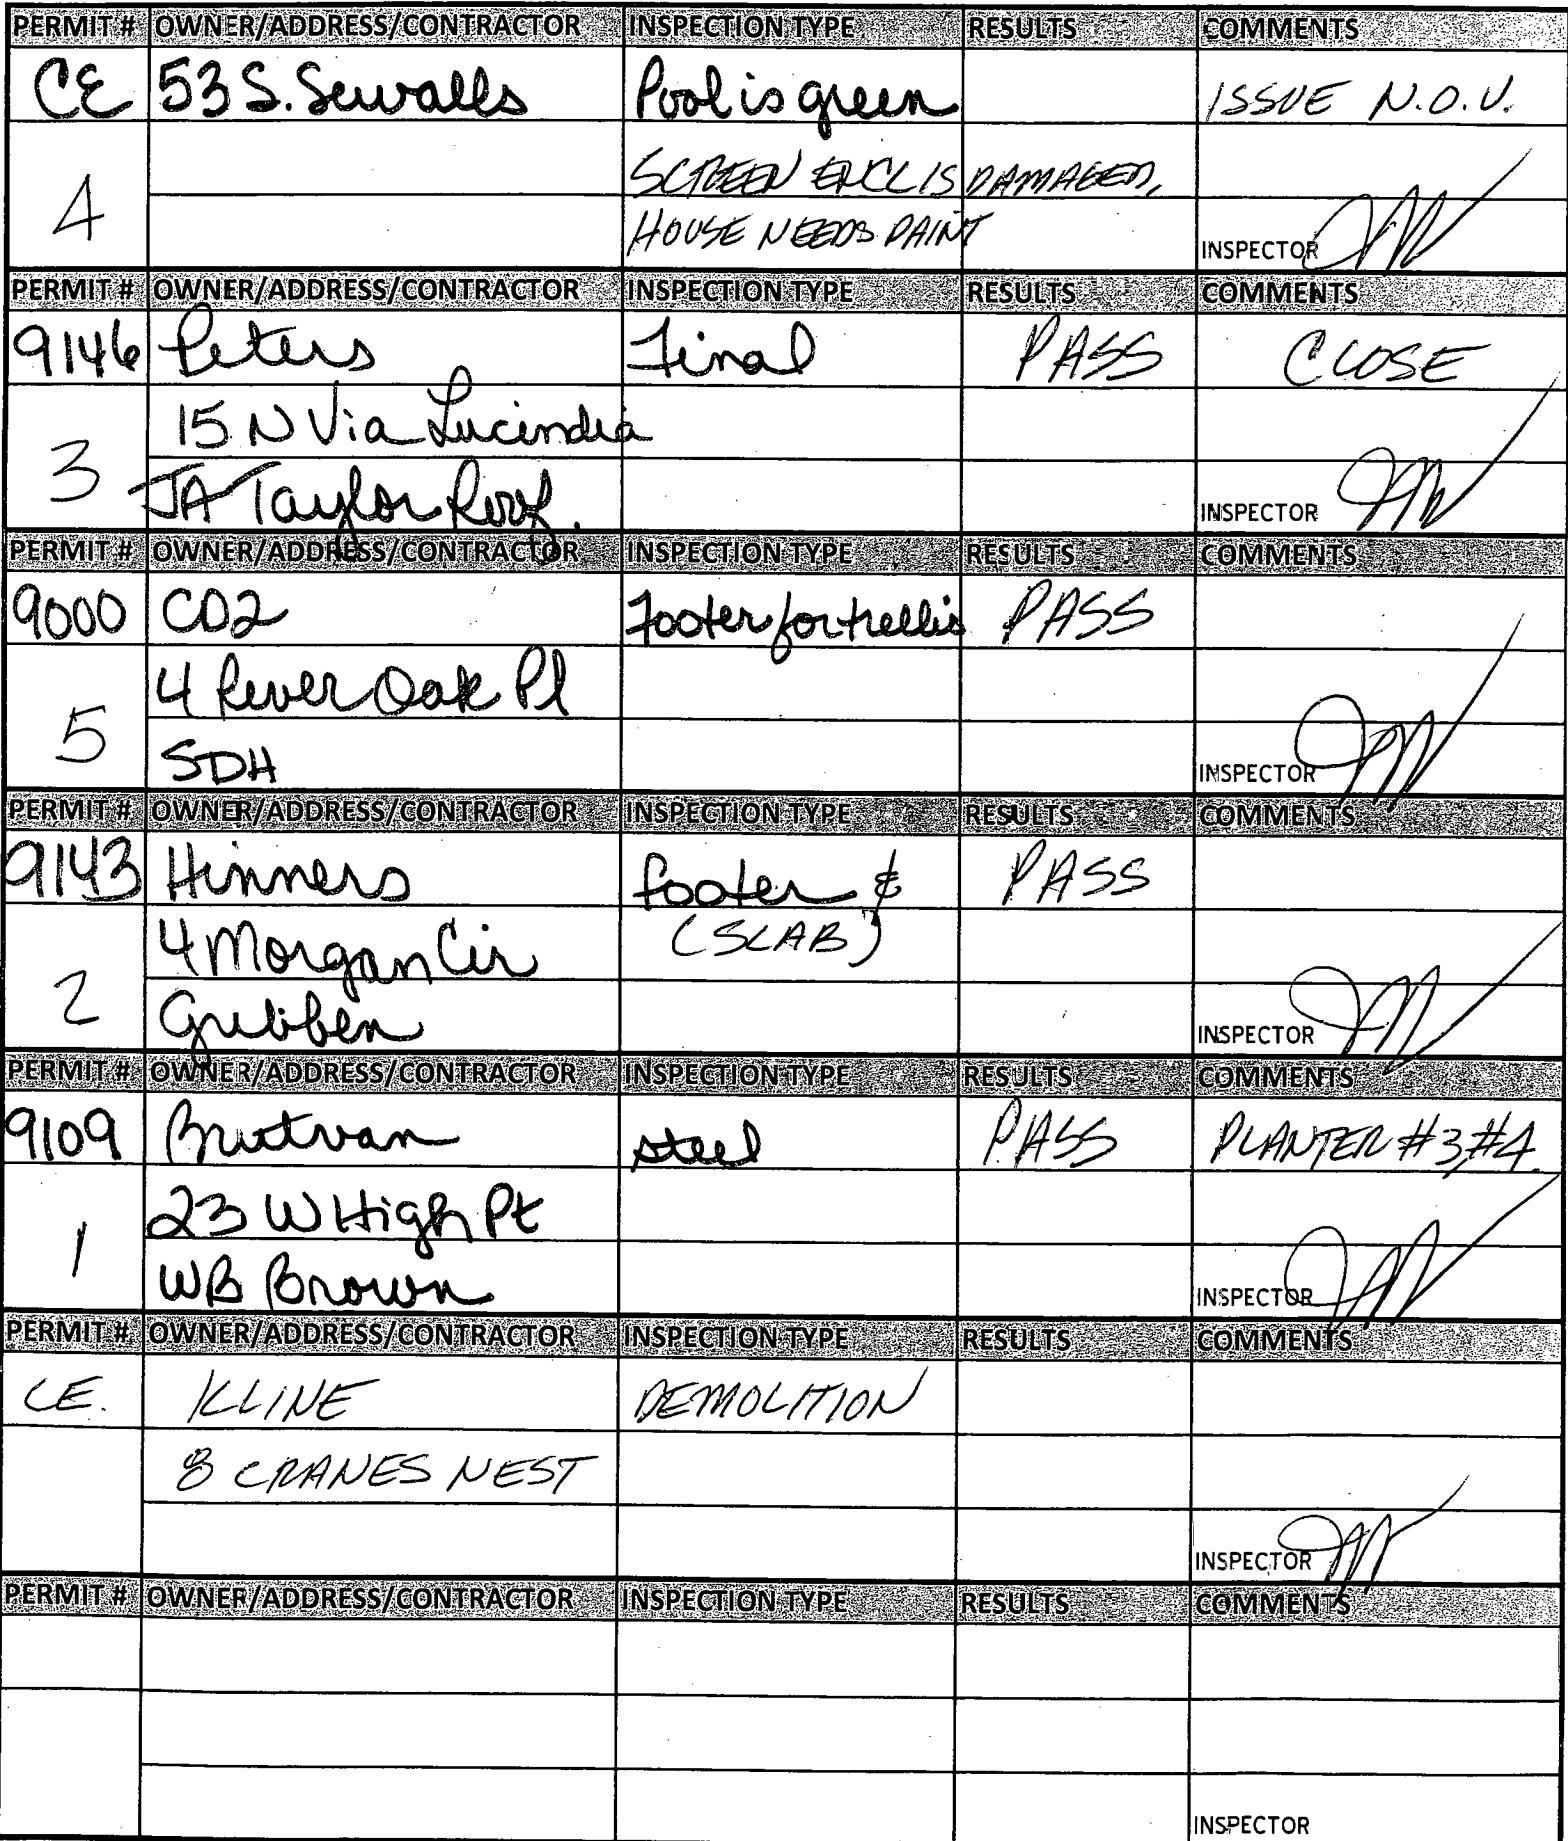 PERMIT # OWNER/ADDRESS/CONTRACTOR INSPECTION TYPE RESULTS COMMENTS
CE 53 S. Sewalls Pool is green ISSUE N.O.V.
4 SCREEN ENCL IS DAMAGED,
HOUSE NEEDS PAINT INSPECTOR
PERMIT # OWNER/ADDRESS/CONTRACTOR INSPECTION TYPE RESULTS COMMENTS
9146 Peters Final PASS CLOSE
3 15 N Via Lucindia
JA Taylor Roof. INSPECTOR
PERMIT # OWNER/ADDRESS/CONTRACTOR INSPECTION TYPE RESULTS COMMENTS
9000 CD2 Footer for trellis PASS
5 4 River Oak Pl
SDH INSPECTOR
PERMIT # OWNER/ADDRESS/CONTRACTOR INSPECTION TYPE RESULTS COMMENTS
9143 Hinners footer & PASS
2 4 Morgan Cir (SLAB)
Gribben INSPECTOR
PERMIT # OWNER/ADDRESS/CONTRACTOR INSPECTION TYPE RESULTS COMMENTS
9109 Brutvan steel PASS PLANTER #3,#4
1 23 W High Pt
WB Brown INSPECTOR
PERMIT # OWNER/ADDRESS/CONTRACTOR INSPECTION TYPE RESULTS COMMENTS
CE. KLINE DEMOLITION
8 CRANES NEST
INSPECTOR
PERMIT # OWNER/ADDRESS/CONTRACTOR INSPECTION TYPE RESULTS COMMENTS
INSPECTOR